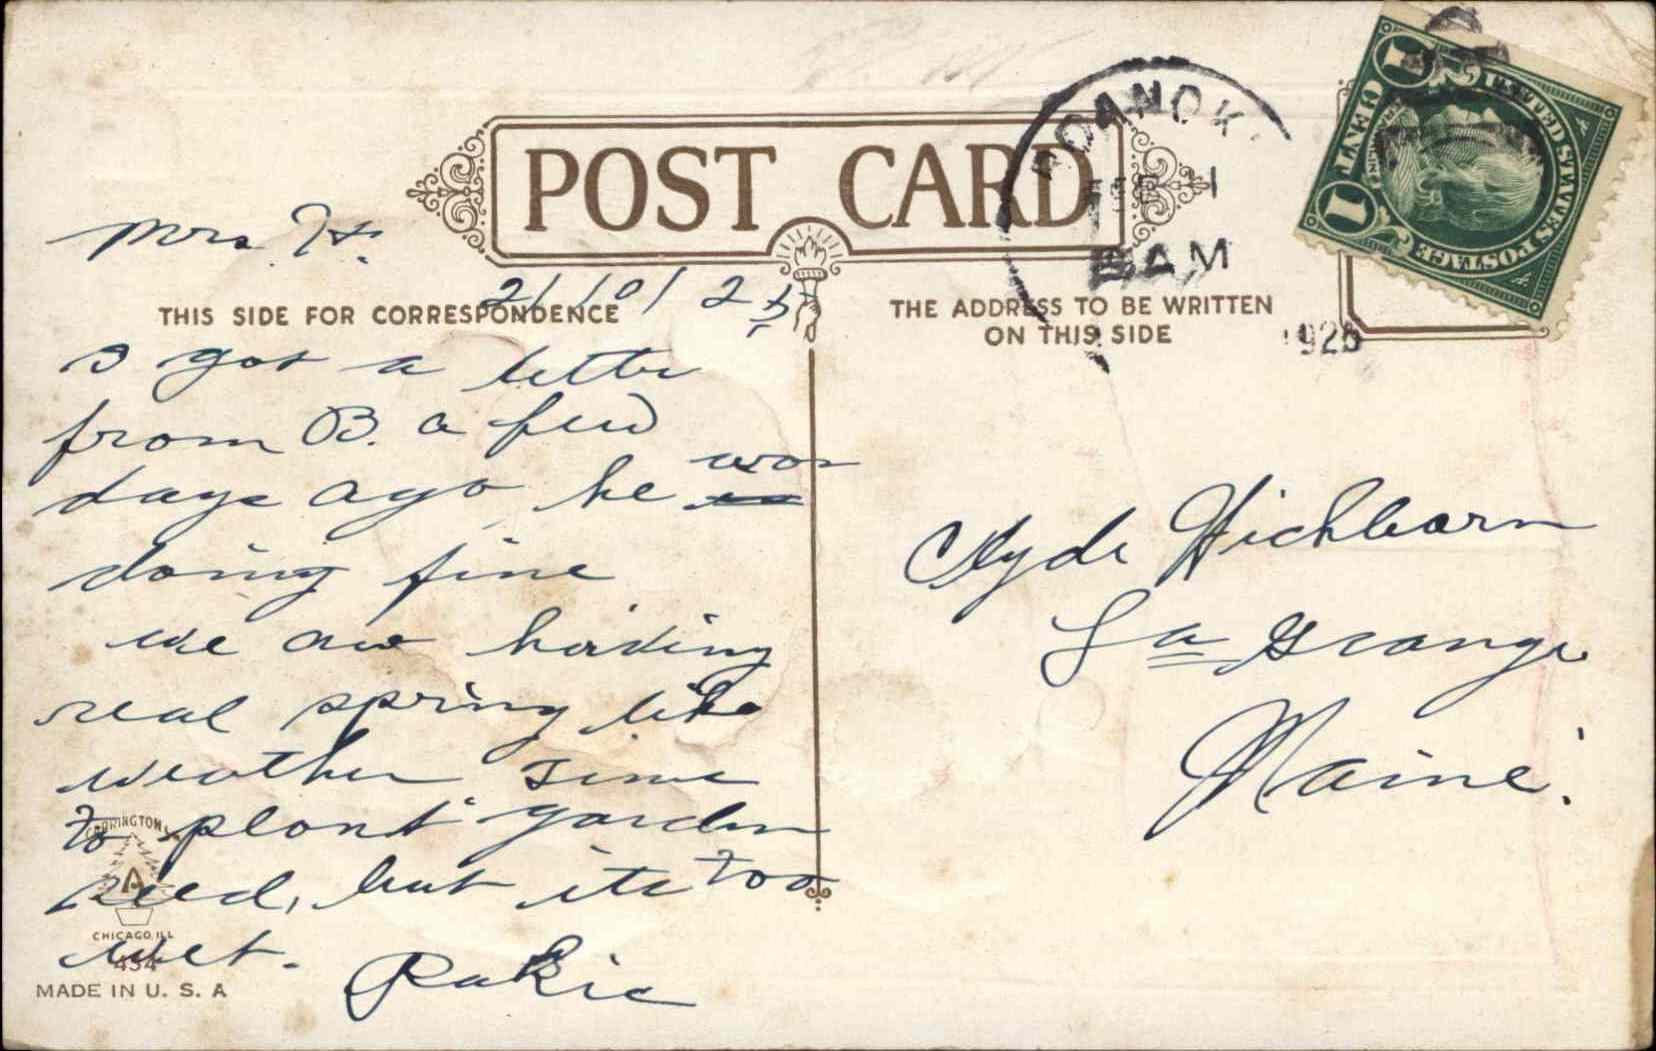 POST CARD
ROANOK
FEB 1
AM
1926
UNITED STATES POSTAGE
1 ONE CENT 1
THIS SIDE FOR CORRESPONDENCE
THE ADDRESS TO BE WRITTEN
ON THIS SIDE
Mrs. H.
I got a letter
from B. a few
days ago he was
doing fine
we are having
real spring like
weather time
to plant garden
seed, but its too
wet.
Clyde Hichborn
La Grange
Maine.
CARRINGTON
A
CHICAGO, ILL
434
MADE IN U. S. A